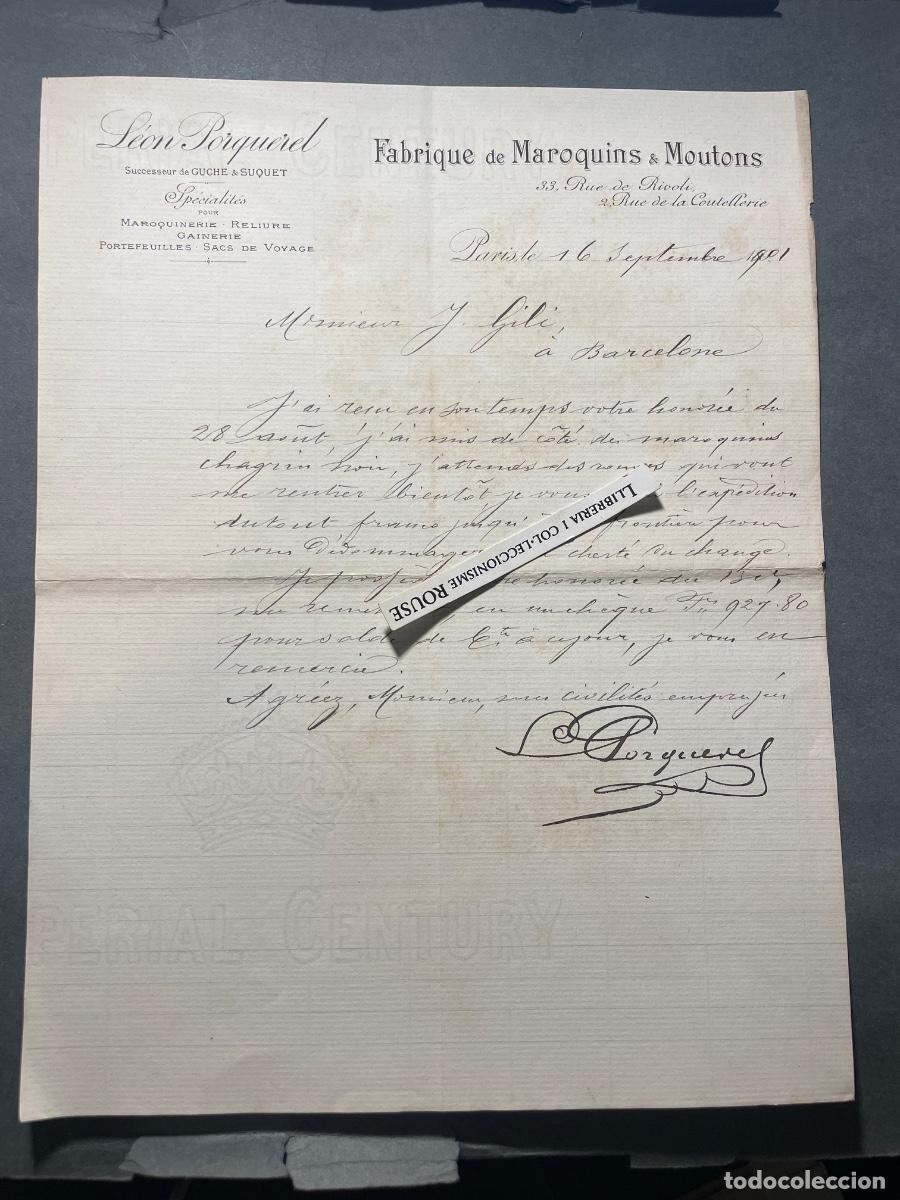 Léon Porquerel
Successeur de GUCHE & SUQUET
Spécialités
POUR
MAROQUINERIE - RELIURE
GAINERIE
PORTEFEUILLES - SACS DE VOYAGE
Fabrique de Maroquins & Moutons
33, Rue de Rivoli,
2, Rue de la Coutellerie
Paris, le 16 Septembre 1901
Monsieur J. Gili,
à Barcelone
J'ai reçu en son temps votre honorée du
28 août, j'ai mis de côté des maroquins
chagrin noir, j'attends des qui vont
me rentrer bientôt je vous l'expédition
du tout franco jusqu'à frontière pour
vous dédommager cherté du change.
Je honorée du
me en un chèque Frs 927.80
pour solde de Cte à ce jour, je vous en
remercie.
Agréez, Monsieur, mes civilités empressées
L. Porquerel
LLIBRERIA I COL·LECCIONISME ROUSE
PERIAL CENTURY
todocoleccion